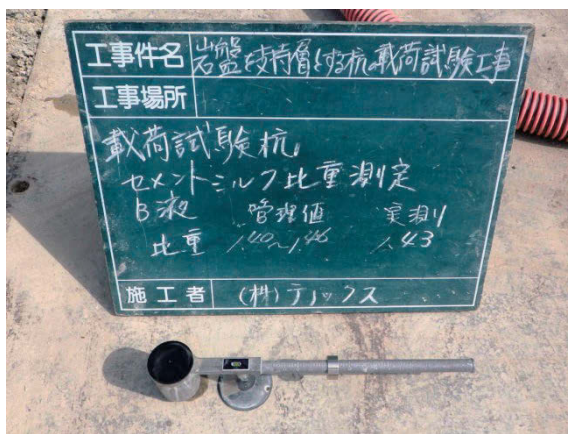 工事件名 岩盤を支持層とする杭の載荷試験工事
工事場所
載荷試験杭
セメントミルク比重測定
B液 管理値 実測
比重 1.40~1.46 1.43
施工者 (株)テノックス